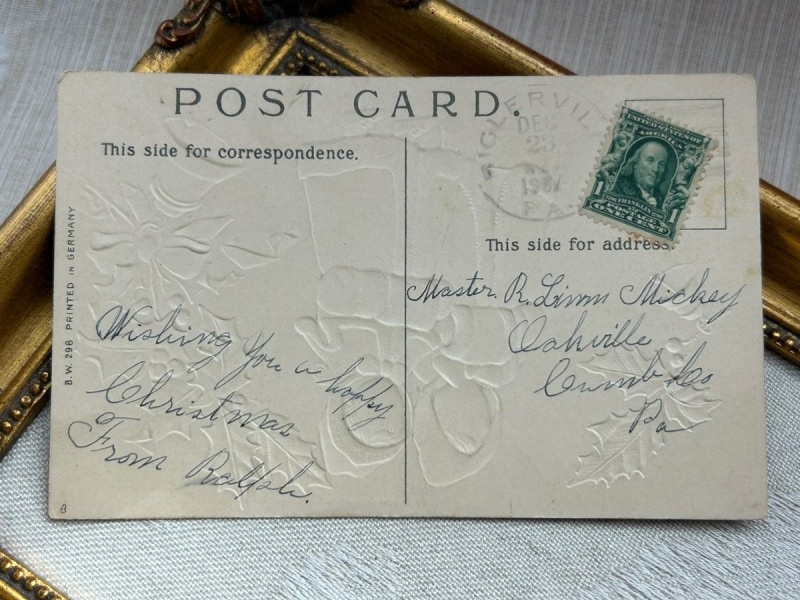 POST CARD.
This side for correspondence.
DEC
23
PA
UNITED STATES OF AMERICA
1 1
FRANKLIN
POSTAGE
ONE CENT
This side for address.
B.W. 296 PRINTED IN GERMANY
Master. R. Linn Mickey
Oakville
Cumb Co
Pa
Wishing you a happy
Christmas
From Ralph.